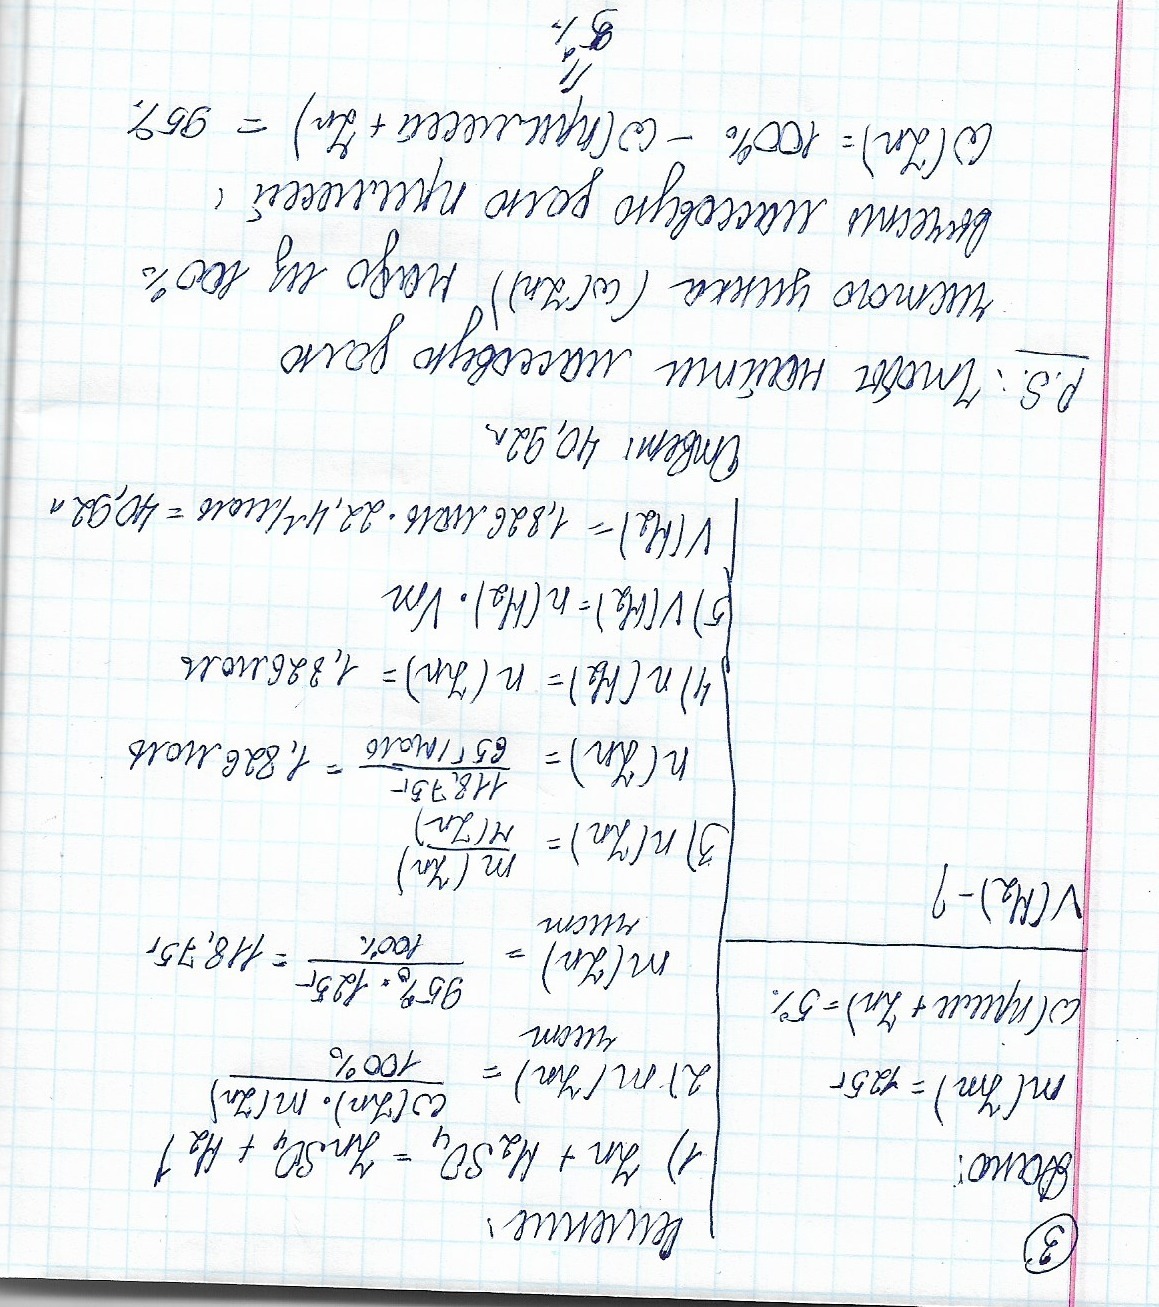 3
Дано:
m(Zn) = 125г
ω(прим + Zn) = 5%
V(H₂) - ?
Решение:
1) Zn + H₂SO₄ = ZnSO₄ + H₂↑
2) m(Zn) чист = ω(Zn) · m(Zn) / 100%
m(Zn) чист = 95% · 125г / 100% = 118,75г
3) n(Zn) = m(Zn) / M(Zn)
n(Zn) = 118,75г / 65г/моль = 1,826 моль
4) n(H₂) = n(Zn) = 1,826 моль
5) V(H₂) = n(H₂) · Vm
V(H₂) = 1,826 моль · 22,4 л/моль = 40,92 л
Ответ: 40,92 л.
P.S.: Чтобы найти массовую долю
чистого цинка (ω(Zn)) надо из 100%
вычесть массовую долю примесей:
ω(Zn) = 100% - ω(примеси + Zn) = 95%
5%